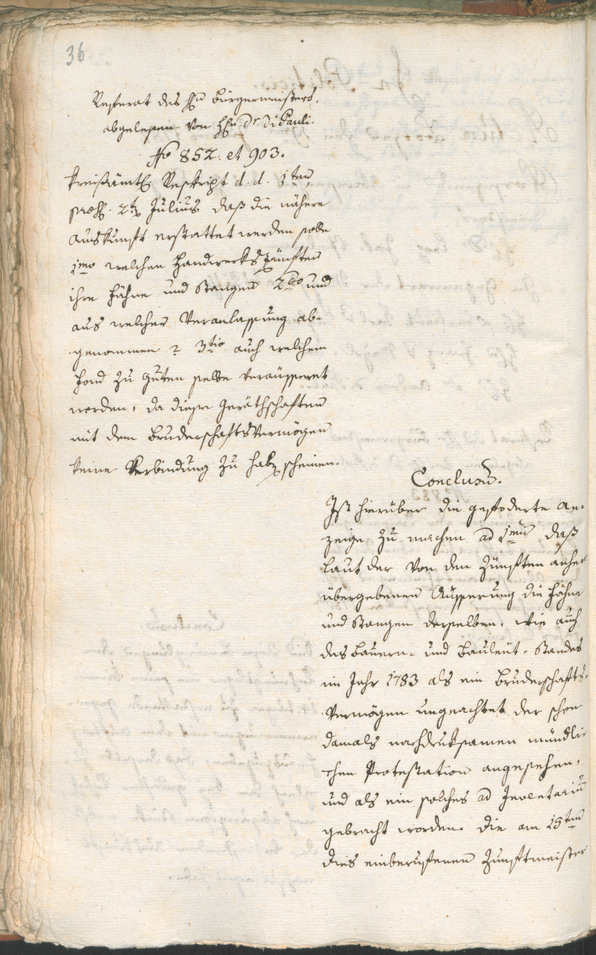 36
Referat des H Bürgermeisters,
abgelesen von H Dr. Di Pauli.
No 852. et 903.
Kreisämtl. Reskript d. d. 1ten
praes. 2t Julius daß die nähere
Auskunft erstattet werden solle
1mo welchen Handwerkszünften
ihre Fähne und Stangen 2do und
aus welcher Veranlassung ab-
genommen 2 3tio auch welchem
Fond zu guten selbe veräusseret
worden, da diese Geräthschaften
mit dem Bruderschaftsvermögen
keine Verbindung zu haben scheinen.
Conclusum.
Ist hierüber die geforderte An-
zeige zu machen ad 1mum daß
laut der von den Zünften anher
übergebenen Äusserung die Fähne
und Stangen derselben, wie auch
des Bauern- und Bauleut-Standes
im Jahr 1783 als ein Bruderschafts-
Vermögen ungeachtet der schon
damals nachdruksamen mündli-
chen Protestation angesehen,
und als ein solches ad Inventarium
gebracht worden. Die am 15ten
dies einberufenen Zunftmeister